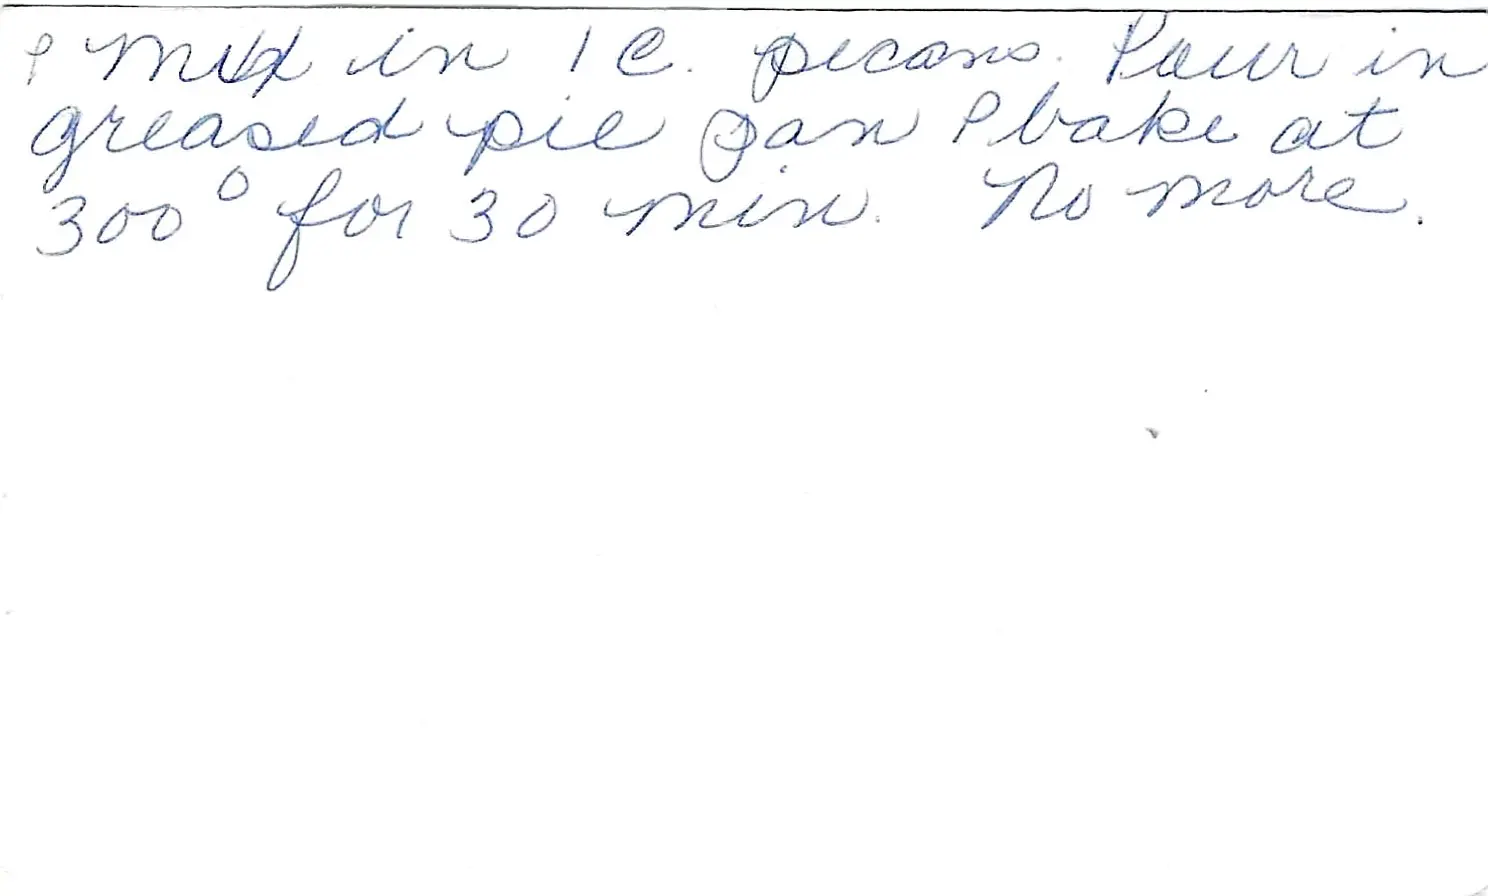 & mix in 1 C. pecans. Pour in
greased pie pan & bake at
300° for 30 min. No more.